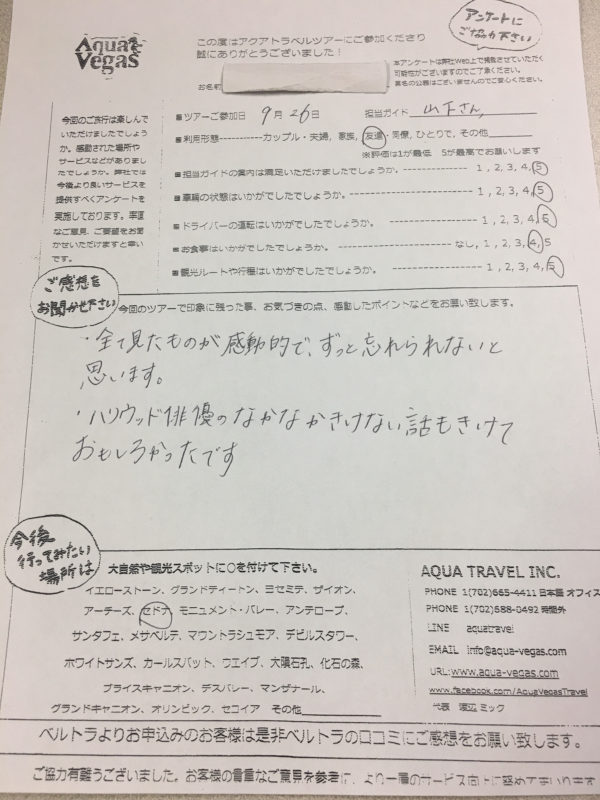 アンケートに
ご協力下さい
Aqua Vegas
この度はアクアトラベルツアーにご参加くださり
誠にありがとうございました！
本アンケートは弊社Web上で掲載させていただく
可能性がございますのでご了承ください。
実名の公開はございませんのでご安心ください。
お名前
今回のご旅行は楽しんで
いただけましたでしょう
か。感動された場所や
サービスなどがありまし
たでしょうか。弊社では
今後より良いサービスを
提供すべくアンケートを
実施しております。率直
なご意見、ご要望をお聞
かせいただけますと幸い
です。
■ツアーご参加日 9月26日 担当ガイド 山下さん
■利用形態-----------カップル・夫婦，家族，友達・同僚，ひとりで，その他
※評価は1が最低 5が最高でお願いします
■担当ガイドの案内は満足いただけましたでしょうか。---------- 1，2，3，4，5
■車輌の状態はいかがでしたでしょうか。---------- 1，2，3，4，5
■ドライバーの運転はいかがでしたでしょうか。---------- 1，2，3，4，5
■お食事はいかがでしたでしょうか。---------- なし，1，2，3，4，5
■観光ルートや行程はいかがでしたでしょうか。---------- 1，2，3，4，5
ご感想を
お聞かせ下さい
今回のツアーで印象に残った事、お気づきの点、感動したポイントなどをお願い致します。
・全て見たものが感動的で、ずっと忘れられないと
思います。
・ハリウッド俳優のなかなかきけない話もきけて
おもしろかったです
今後
行ってみたい
場所は
大自然や観光スポットに○を付けて下さい。
イエローストーン、グランドティートン、ヨセミテ、ザイオン、
アーチーズ、セドナ、モニュメント・バレー、アンテロープ、
サンタフェ、メサベルデ、マウントラシュモア、デビルスタワー、
ホワイトサンズ、カールスバット、ウエイブ、大隕石孔、化石の森、
ブライスキャニオン、デスバレー、マンザナール、
グランドキャニオン、オリンピック、セコイア その他
AQUA TRAVEL INC.
PHONE 1(702)665-4411 日本語 オフィス
PHONE 1(702)688-0492 時間外
LINE aquatravel
EMAIL info@aqua-vegas.com
URL: www.aqua-vegas.com
www.facebook.com/AquaVegasTravel
代表 渡辺 ミック
ベルトラよりお申込みのお客様は是非ベルトラの口コミにご感想をお願い致します。
ご協力有難うございました。お客様の貴重なご意見を参考に、より一層のサービス向上に努めてまいります